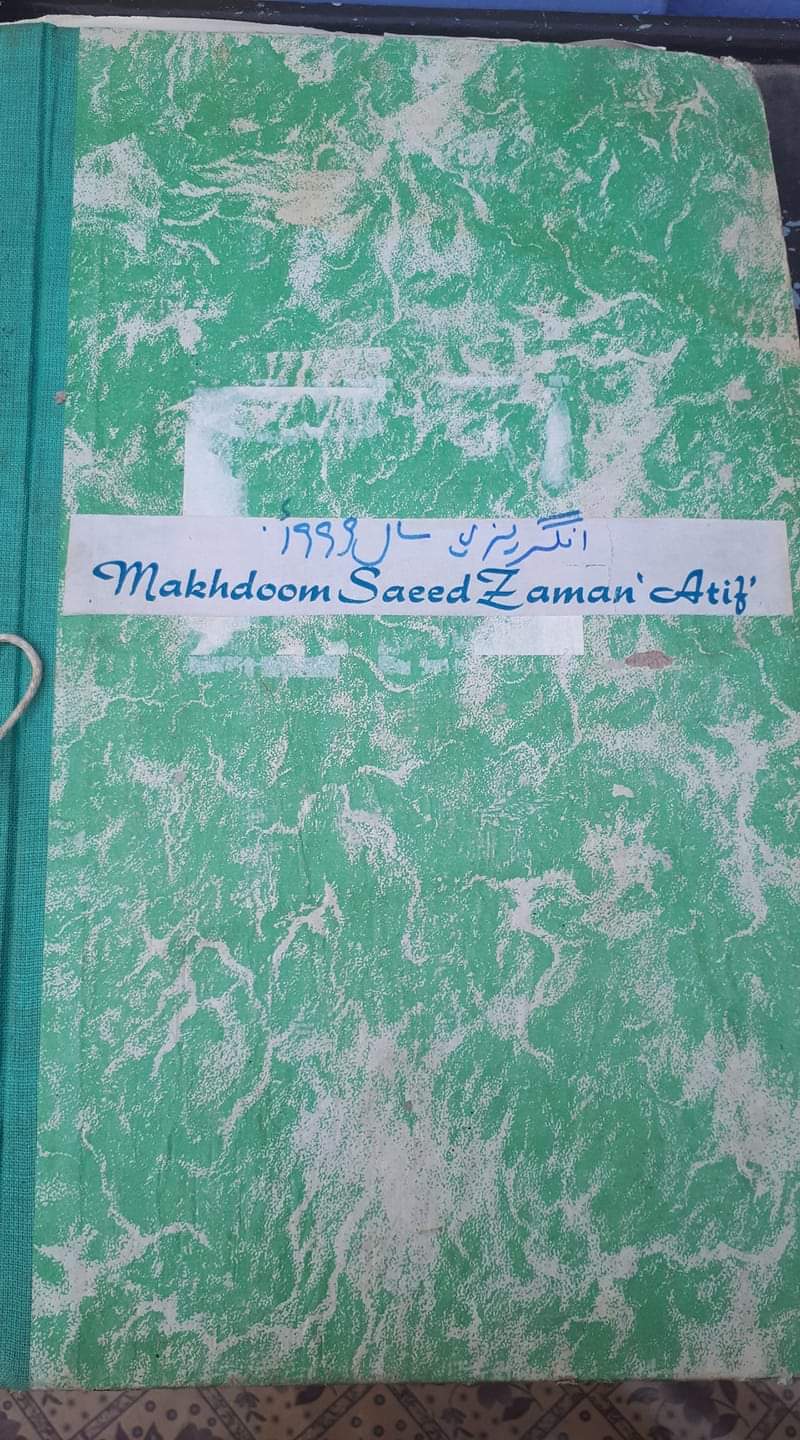 انگریزی سال ۱۹۹۹ء
Makhdoom Saeed Zaman 'Atif'